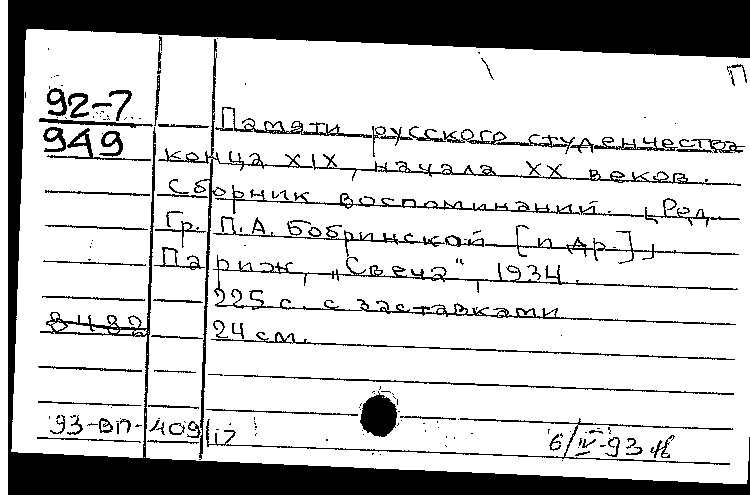 П
92-7
949
Памяти русского студенчества
конца XIX, начала XX веков.
Сборник воспоминаний. [Ред.
Гр. П.А. Бобринской [и др.]].
Париж, „Свеча", 1934.
225 с. с заставками
8482
24 см.
93-ВП-409/17
6/IV-93